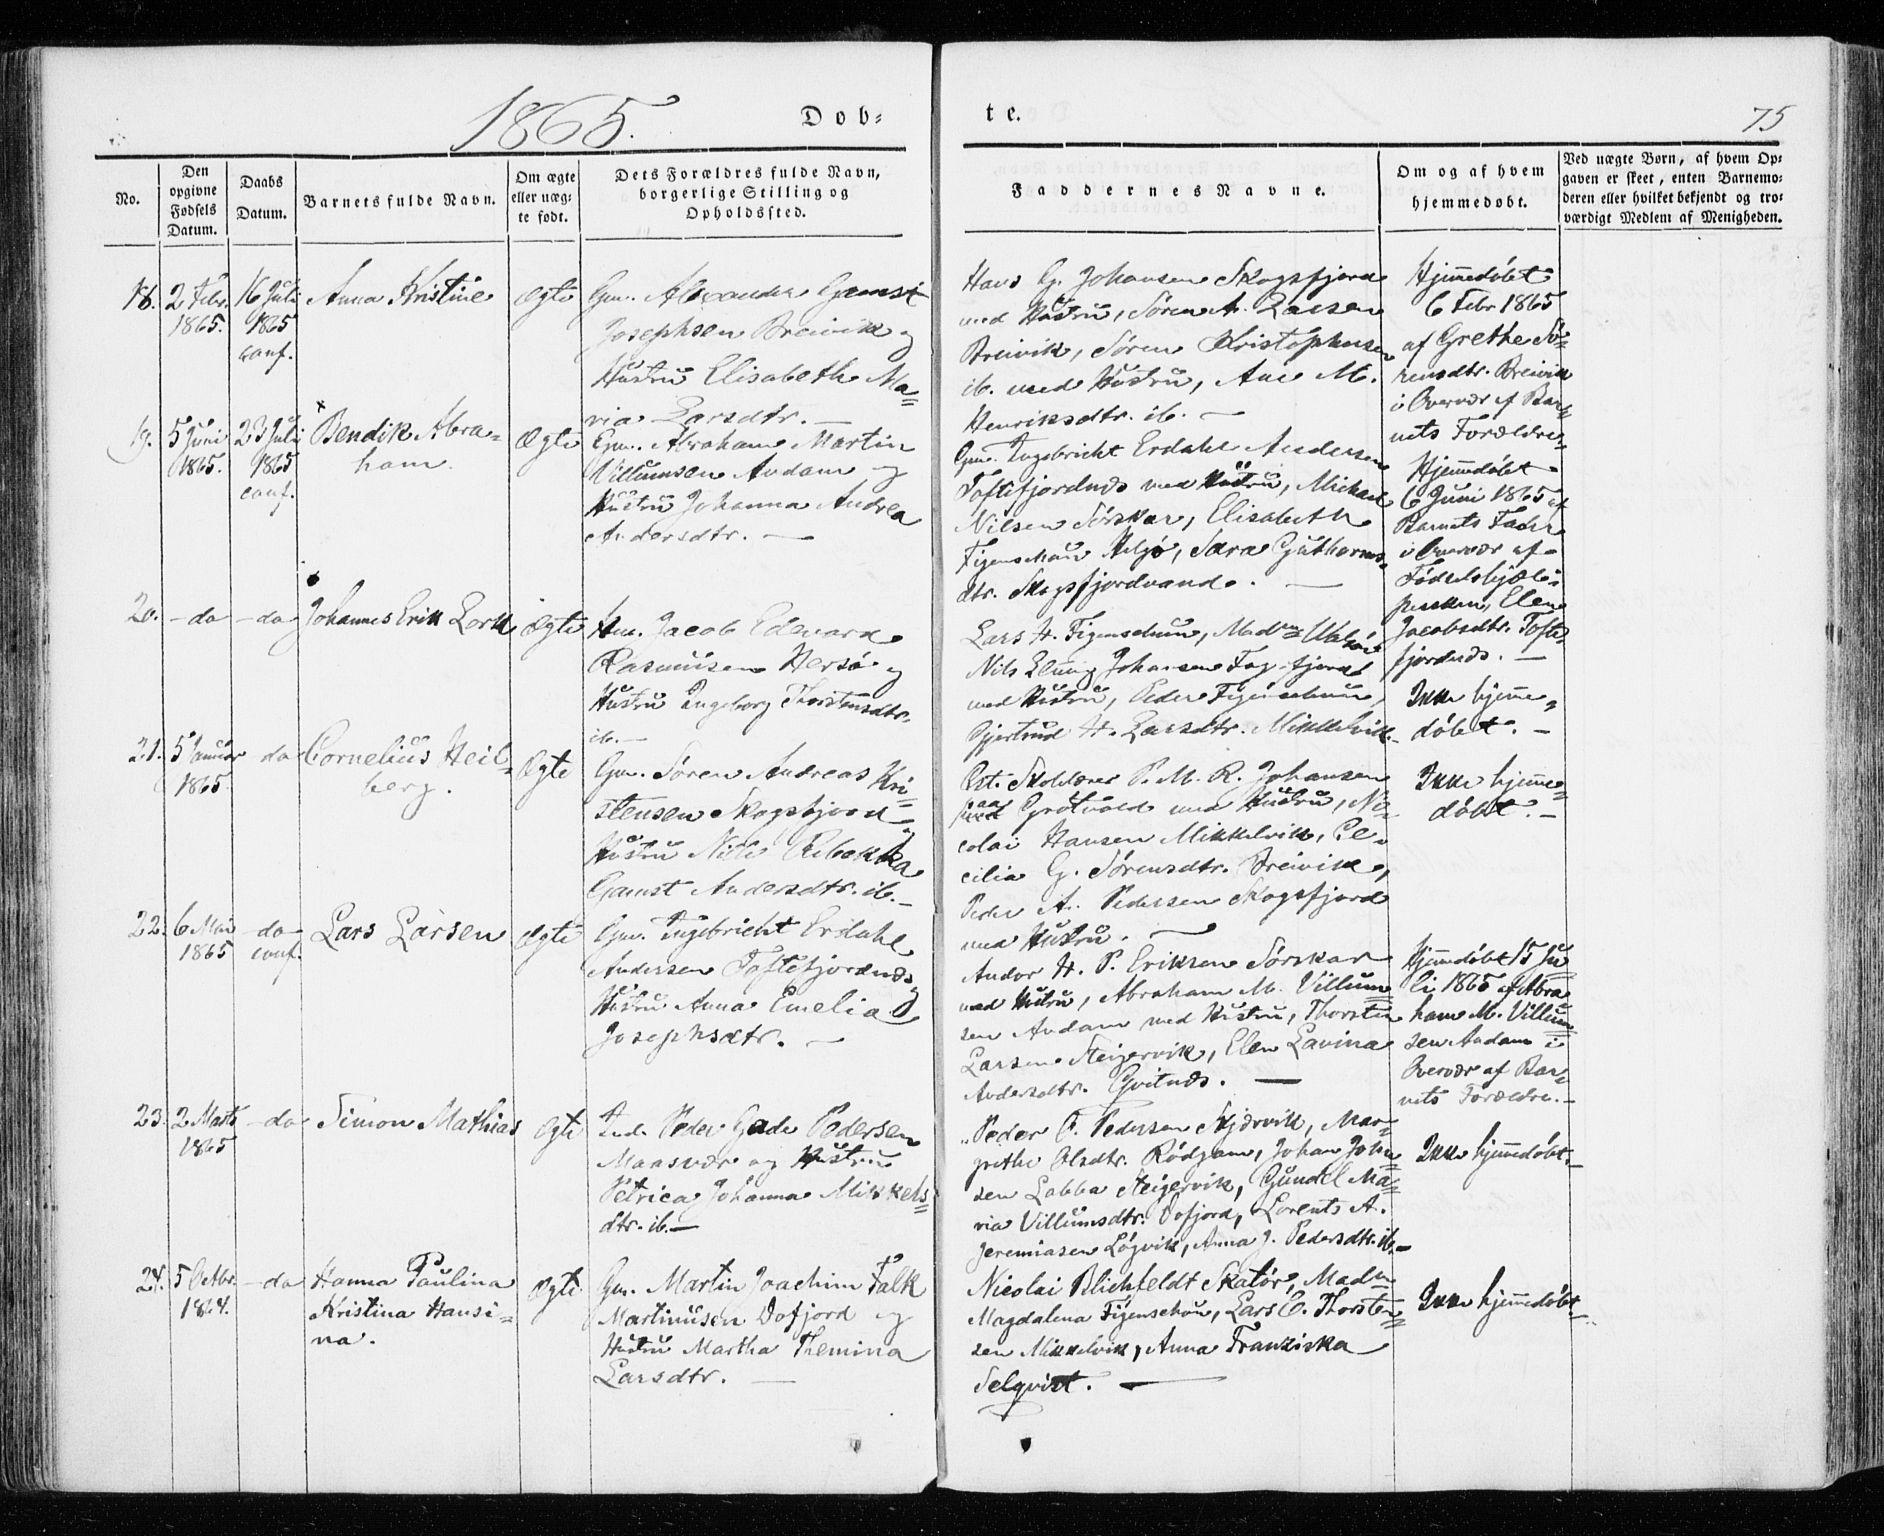 1865.
Dob-
te.
75
No.
Den opgivne Fødsels Datum.
Daabs Datum.
Barnets fulde Navn.
Om ægte eller uæg-te født.
Dets Forældres fulde Navn, borgerlige Stilling og Opholdssted.
Faddernes Navne.
Om og af hvem hjemmedøbt.
Ved uægte Børn, af hvem Op-gaven er skeet, enten Barnemo-deren eller hvilket bekjendt og tro-værdigt Medlem af Menigheden.
18.
2 Febr.
1865.
16 Juli
1865
conf.
Anna Kristine
Ægte
Gm. Alexander Gamst
Josephsen Breivik og
Hustru Elisabeth Ma=
ria Larsdtr. —
Hans G. Johansen Skogsfjord
med Hustru, Søren A. Larsen
Breivik, Søren Kristophersen
ib. med Hustru, Ane M.
Henriksdtr. ib. —
Hjemmedøbt
6 Febr 1865
af Grethe Sø=
rensdtr. Breivik
i Overvær af Bar=
nets Forældre.
19.
5 Juni
1865.
23 Juli
1865
conf.
Bendik Abra=
ham.
Ægte
Gm. Abraham Martin
Villumsen Andam og
Hustru Johanna Andrea
Andersdtr. —
Gm. Ingebricht Erdahl Andersen
Toftefjordnæs med Hustru, Mickael
Nilsen Sørskar, Elisabeth
Figenschau Helgø, Sara Guthorms=
dtr. Skogsfjordvand. —
Hjemmedøbt
6 Juni 1865 af
Barnets Fader
i Overvær af
Fødselshjæl=
persken, Elen
Jacobsdtr. Tofte
fjordnæs. —
20.
- do
- do
Johannes Erik Lork
Ægte
Hm. Jacob Edevard
Rasmusen Hersø og
Hustru Ingeborg Thorstensdtr.
ib. —
Lars H. Figenschau,
Nils Johansen
med Hustru, Peder Figenschau,
Gjertrud H. Larsdtr. Mikkelvik.
Ikke hjemme=
døbt. —
21.
5 Januar
1865.
- do
Cornelius Heil=
berg.
Ægte
Gm. Søren Andreas Kri=
stensen Skogsfjord og
Hustru Rebekka
Gamst Andersdtr. ib. —
Skolelærer P. M. R. Johansen
Grøtvold med Hustru, Ni=
colai Hansen Mikkelvik, Ce=
cilia G. Sørensdtr. Breivik,
Peder A. Pedersen Skogsfjord
med Hustru. —
Ikke hjemme=
døbt. —
22.
6 Mai
1865
- do
conf.
Lars Larsen
Ægte
Gm. Ingebricht Erdahl
Andersen Toftefjordnæs og
Hustru Anna Emelia
Josephsdtr. —
Andor H. P. Eriksen Sørskar
med Hustru, Abraham M. Villum=
sen Andam med Hustru, Thorsten
Larsen Steigervik, Elen Lavina
Andersdtr. Gvitnæs. —
Hjemmedøbt 15 Ju
li 1865 af Abra=
ham M. Villum=
sen Andam i
Overvær af Bar=
nets Forældre. —
23.
2 Marts
1865
- do
Simon Mathias
Ægte
Ind. Peder Gade Pedersen
Maasvær og Hustru
Petrica Johanna Mikkels=
dtr. ib. —
Peder P. Pedersen Skjærvik, Mar=
grethe Olsdtr. Rødgam, Johan Johan
sen Labba Steigervik, Gundel Ma=
ria Villumsdtr. Dofjord, Lorents A.
Jeremiasen Løgvik, Anna J. Pedersdtr. ib. —
Ikke hjemmedøbt. —
24.
5 Octbr.
1864.
- do
Hanna Paulina
Kristina Hansi=
na.
Ægte
Gm. Martin Joachim Falk
Martinusen Dofjord og
Hustru Martha Themina
Larsdtr. —
Nicolai Blichfeldt Skatør, Madm
Magdalena Figenschou, Lars C. Thorsten=
sen Mikkelvik, Anna Franziska
Selqvist. —
Ikke hjemmedøbt. —